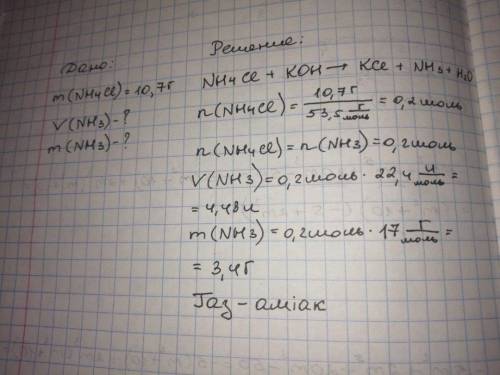 Дано:
m(NH4Cl) = 10,7г
V(NH3) - ?
m(NH3) - ?
Решение:
NH4Cl + KOH → KCl + NH3 + H2O
n(NH4Cl) = 10,7г / 53,5 г/моль = 0,2 моль
n(NH4Cl) = n(NH3) = 0,2 моль
V(NH3) = 0,2 моль · 22,4 л/моль =
= 4,48 л
m(NH3) = 0,2 моль · 17 г/моль =
= 3,4г
Газ - аміак